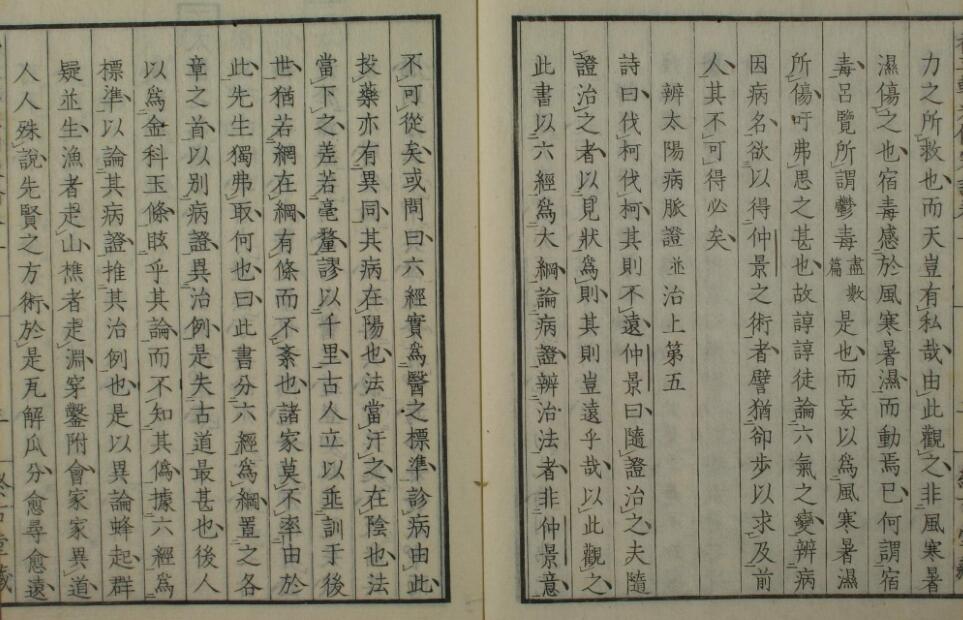 力之所救也而天豈有私哉由此觀之非風寒暑
濕傷之也宿毒感於風寒暑濕而動焉已何謂宿
毒呂覽所謂鬱毒盡數篇是也而妄以爲風寒暑濕
所傷吁弗思之甚也故諄諄徒論六氣之變辨病
因病名欲以得仲景之術者譬猶卻步以求及前
人其不可得必矣
辨太陽病脈證並治上第五
詩曰伐柯伐柯其則不遠仲景曰隨證治之夫隨
證治之者以見狀爲則其則豈遠乎哉以此觀之
此書以六經爲大綱論病證辨治法者非仲景意
不可從矣或問曰六經實爲醫之標準診病由此
投藥亦有異同其病在陽也法當汗之在陰也法
當下之差若毫釐謬以千里古人立以垂訓于後
世猶若網在綱有條而不紊也諸家莫不率由於
此先生獨弗取何也曰此書分六經爲綱置之各
章之首以別病證異治例是失古道最甚也後人
以爲金科玉條眩乎其論而不知其僞據六經爲
標準以論其病證推其治例也是以異論蜂起群
疑並生漁者走山樵者走淵穿鑿附會家家異道
人人殊說先賢之方術於是瓦解瓜分愈尋愈遠